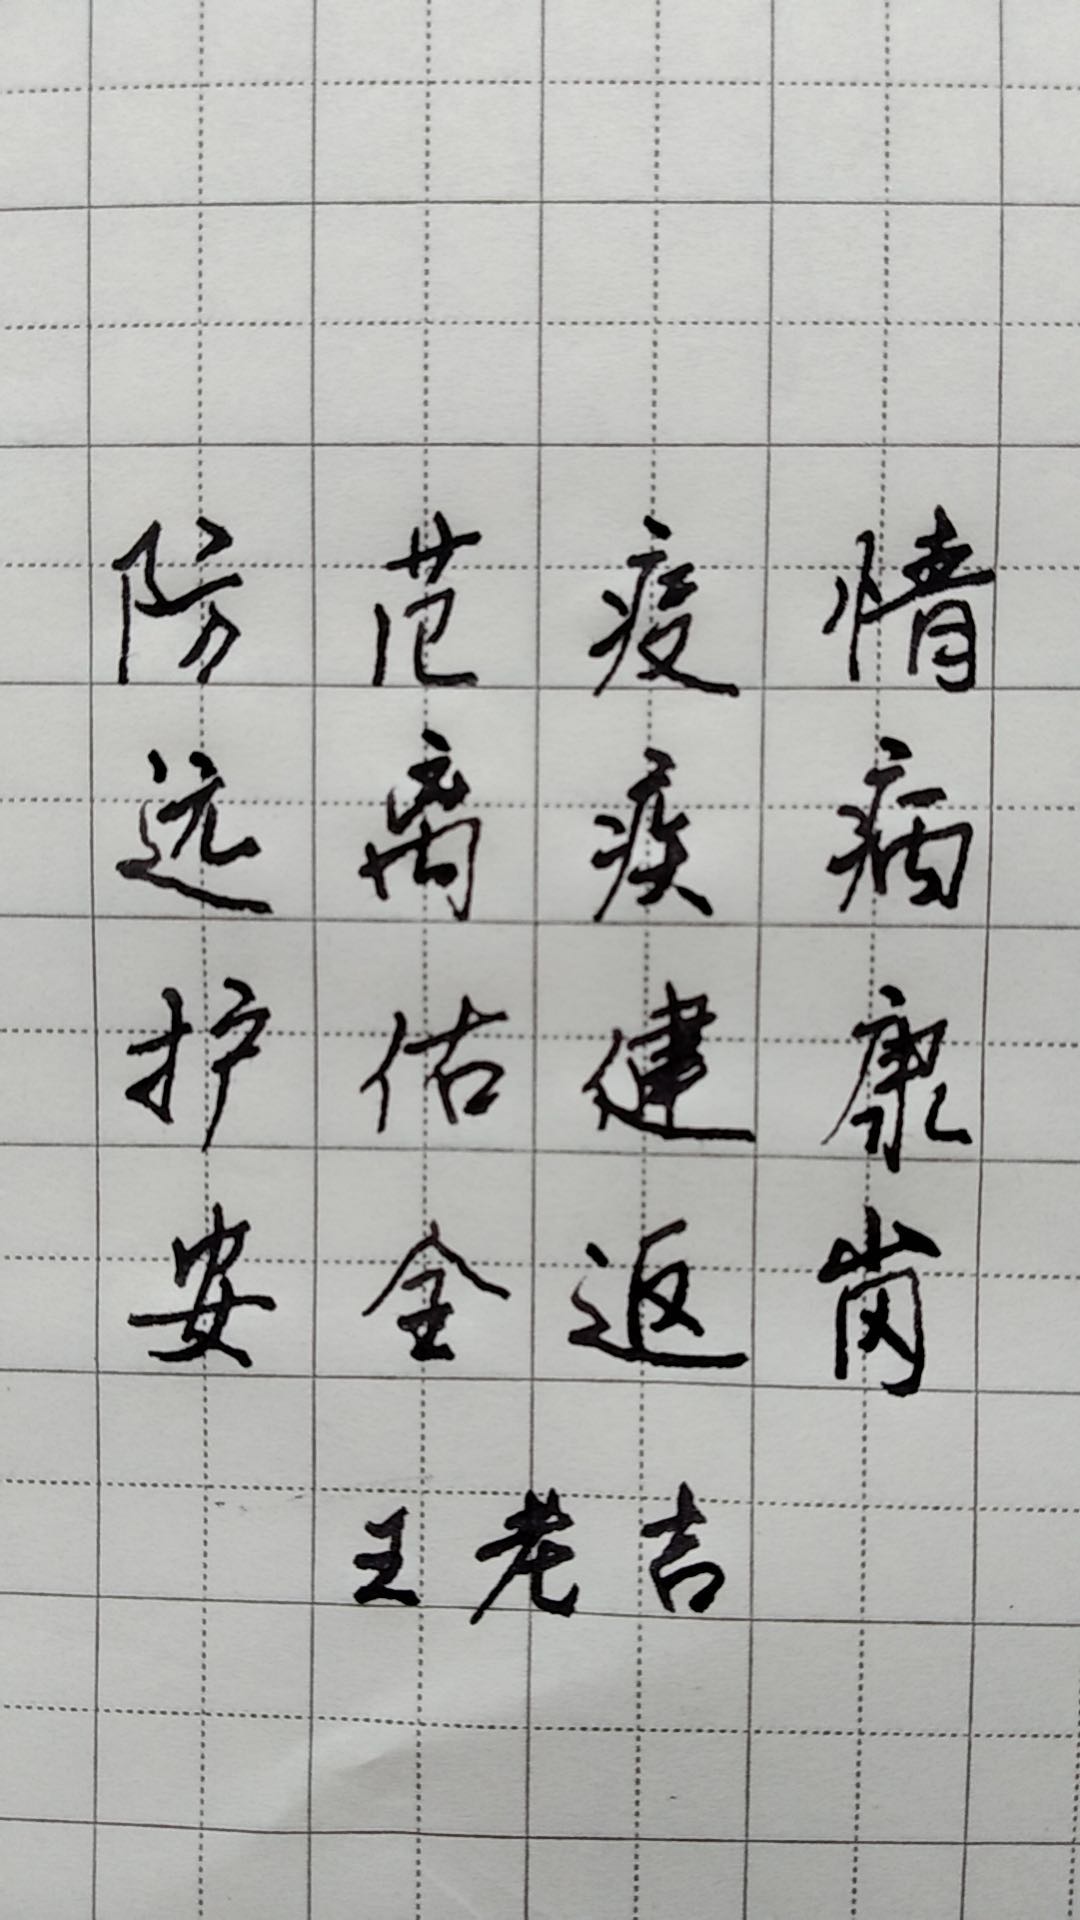 防范疫情
远离疾病
护估健康
安全返岗
王老吉